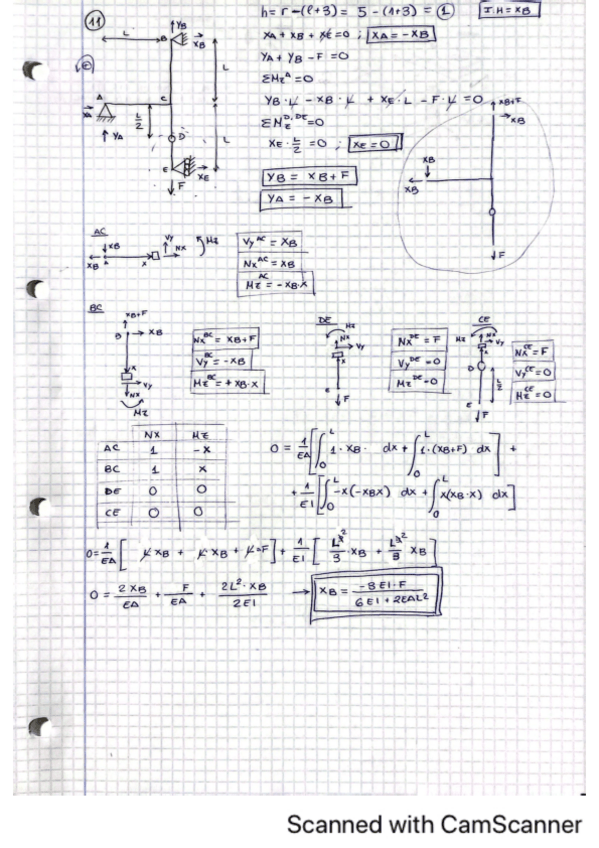 11
h = r - (l+3) = 5 - (1+3) = 1 I.H = XB
XA + XB + XE = 0 ; XA = - XB
YA + YB - F = 0
ΣMz^A = 0
YB · L - XB · L + XE · L - F · L = 0
ΣMz^D,DE = 0
XE · L/2 = 0 ; XE = 0
YB = XB + F
YA = - XB
YB
XB
B
L
L
A
C
XA
YA
L/2
D
L
E
XE
F
XB+F
XB
XB
XB
F
AC
XB
XB
A
X
Vy
Nx
Mz
Vy^AC = XB
Nx^AC = XB
Mz^AC = - XB·X
BC
XB+F
B
XB
X
Vy
Nx
Mz
Nx^BC = XB+F
Vy^BC = - XB
Mz^BC = + XB·X
DE
Mz
Nx
Vy
X
E
F
Nx^DE = F
Vy^DE = 0
Mz^DE = 0
CE
Mz
Nx
Vy
X
D
L/2
E
F
Nx^CE = F
Vy^CE = 0
Mz^CE = 0
NX MZ
AC 1 -X
BC 1 X
DE 0 0
CE 0 0
0 = 1/EA [ ∫0^L 1 · XB · dx + ∫0^L 1 · (XB+F) dx ] +
+ 1/EI [ ∫0^L -X(-XBX) dx + ∫0^L X(XB·X) dx ]
0 = 1/EA [ L XB + L XB + L·F ] + 1/EI [ L^2/3 · XB + L^2/3 XB ]
0 = 2XB/EA + F/EA + 2L²·XB/2EI → XB = -3EI·F / 6EI + 2EAL²
Scanned with CamScanner